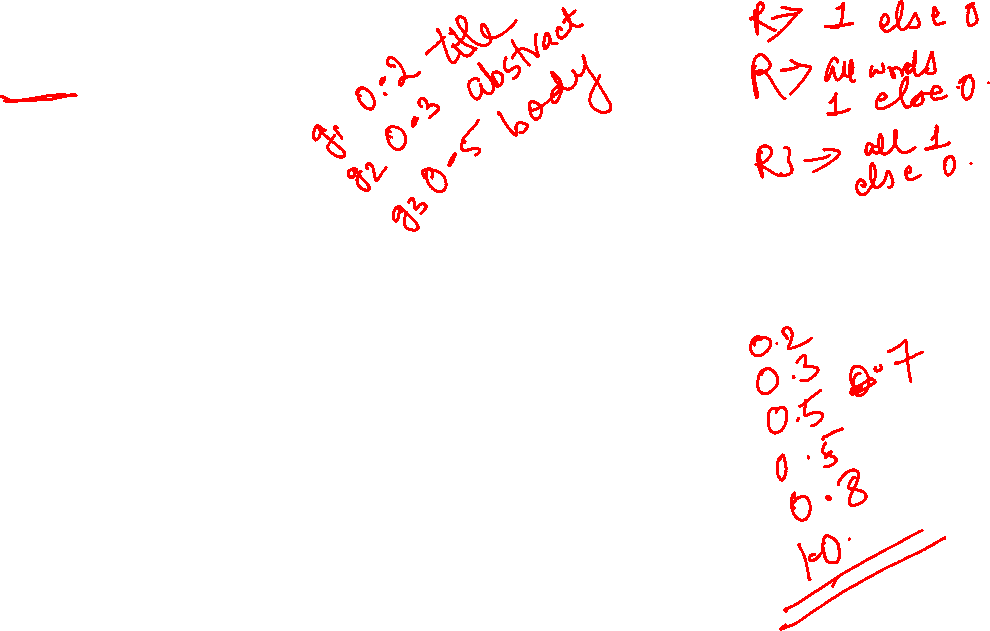 g1 0.2 title
g2 0.3 abstract
g3 0.5 body
R→ 1 else 0
R→ all words
1 else 0.
R3→ all 1
else 0.
0.2
0.3 0.7
0.5
0.5
0.8
1.0.